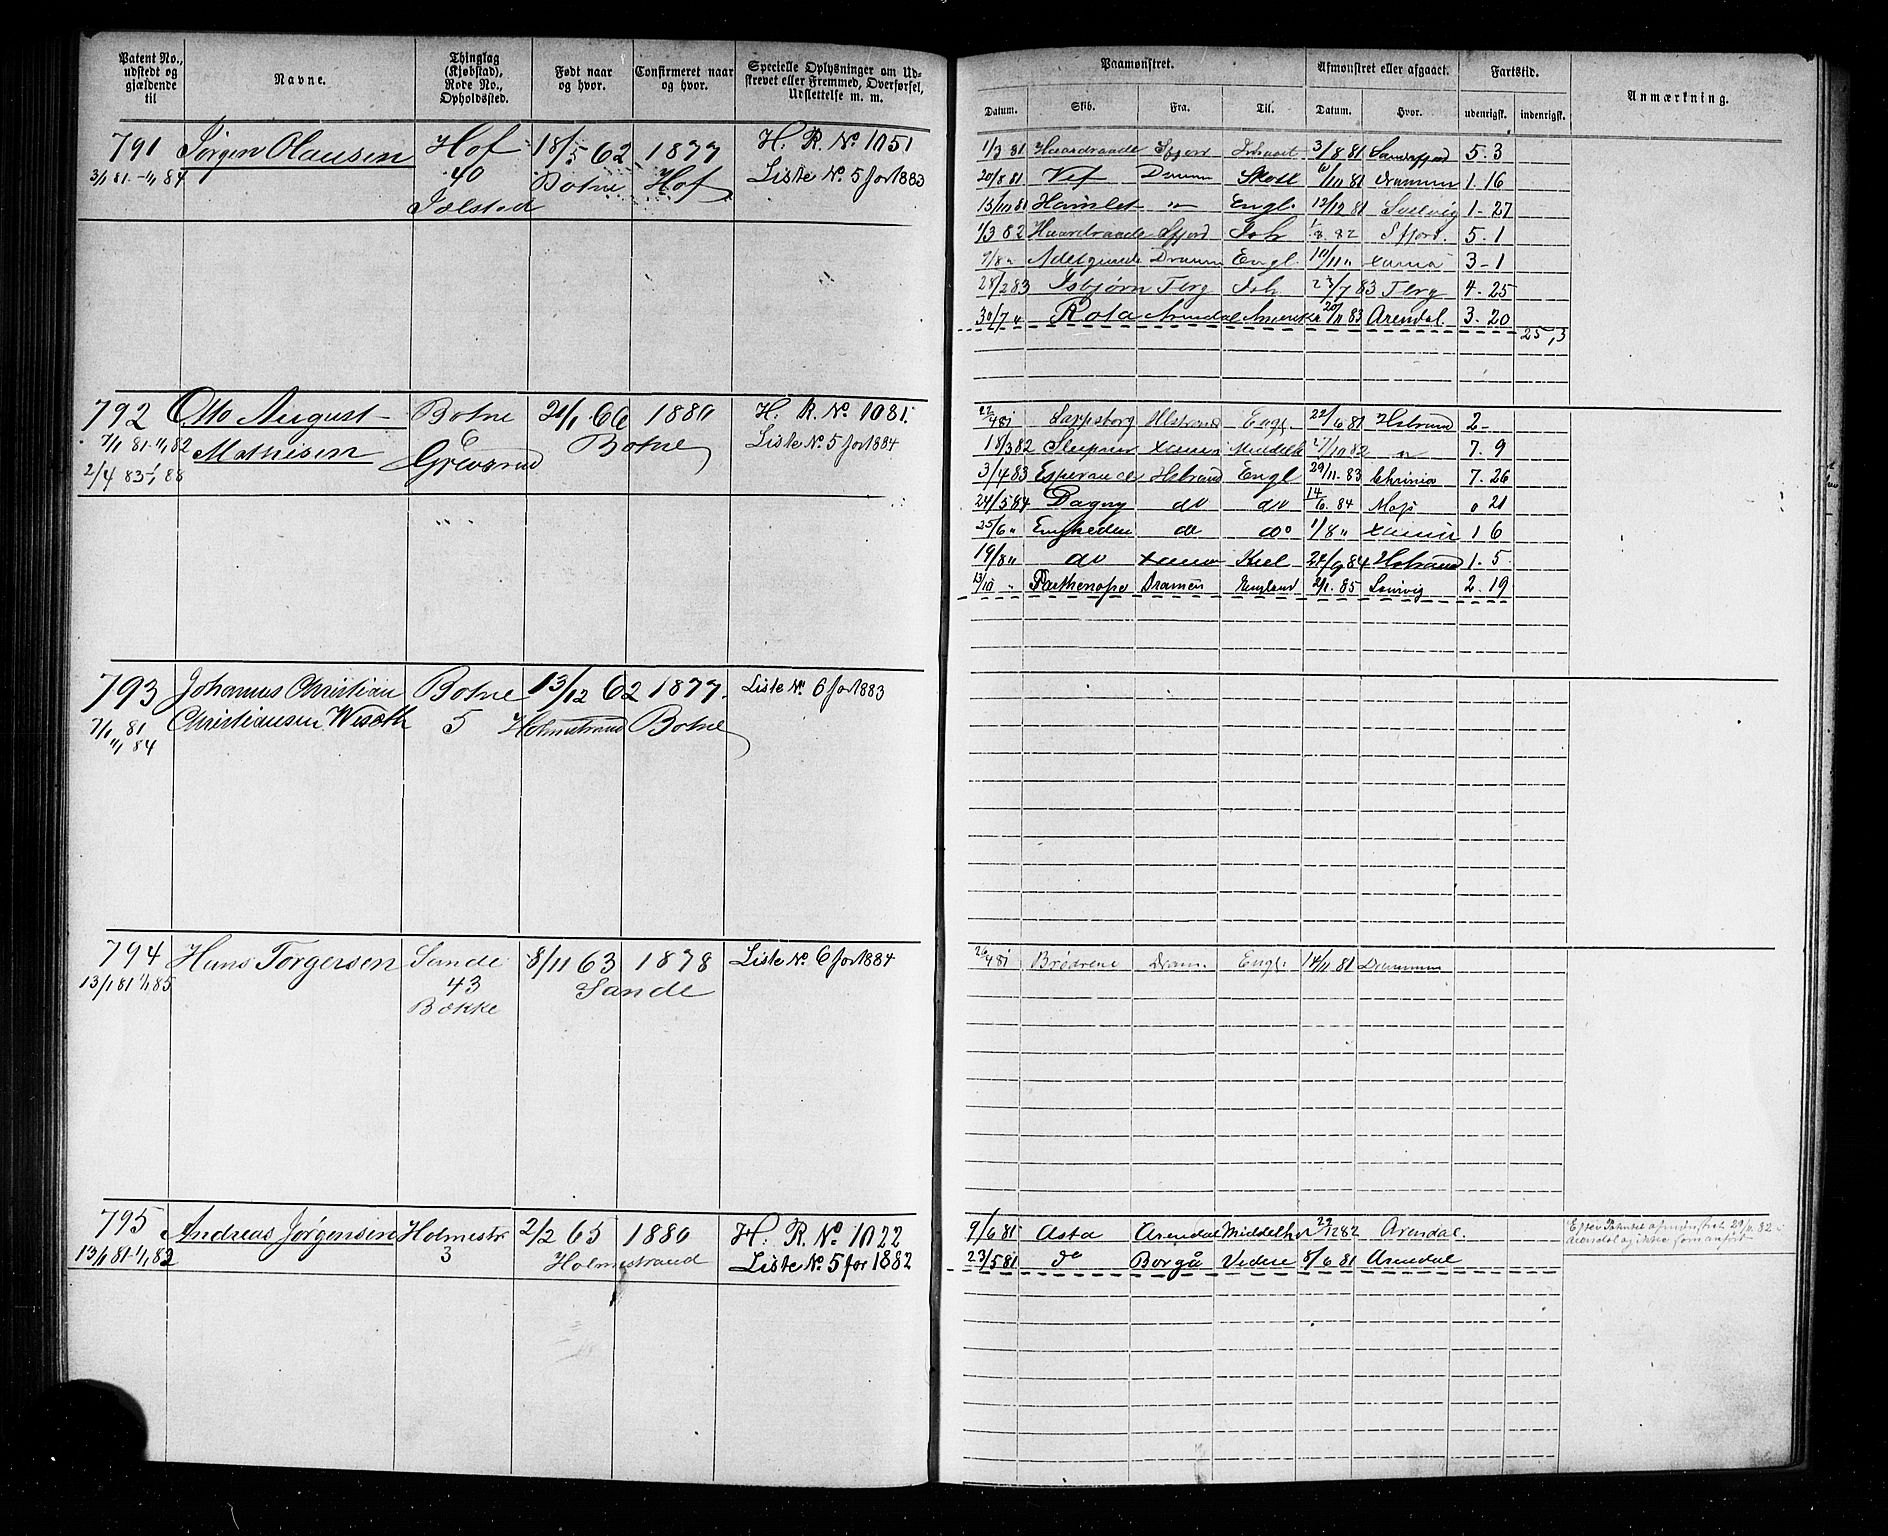 Patent No., udstedt og gjældende til
Navne.
Thinglag (Kjøbstad), Rode No., Opholdssted.
Født naar og hvor.
Confirmeret naar og hvor.
Specielle Oplysninger om Udskrevet eller Fremmed, Overførsel, Udslettelse m. m.
791 Jørgen Olausen Hof 18/5 62 1877 H. R. No 1051
3/1 81 - 1/1 84 40 Botne Hof Liste No. 5 for 1883
792 Otto August Botne 21/1 66 1880 H. R. No. 1031.
7/1 81 - 1/1 82 Mathisen 6 Botne Liste No. 5 for 1884
2/4 83 - 1/1 88 Grevsrud
793 Johannes Christian Botne 13/12 62 1877. Liste No. 6 for 1883
7/1 81 Christiansen Wisæth 5 Holmestrand Botne
1/1 84
794 Hans Torgersen Sande 8/11 63 1878 Liste No. 6 for 1884
13/1 81 1/1 85 43 Sande
Bække
795 Andreas Jørgensen Holmestr 2/2 65 1880 H. R. No. 1022
13/1 81 - 1/1 83 3 Holmestrand Liste No. 5 for 1882
Paamønstret.
Afmønstret eller afgaaet.
Fartstid.
Anmærkning.
Datum. Skib. Fra. Til. Datum. Hvor. udenrigsk. indenrigsk.
1/3 81 Haardraade Sfjord Ishavet 3/8 81 Sandefjord 5. 3
20/8 81 Vif Dramm Skotl 6/11 81 Drammen 1. 16
13/11 81 Hamlet " Engl. 12/12 81 Svelvig 1 - 27
1/3 82 Haardraade Sfjord Ish 1/8. 82 Sfjord. 5. 1
9/8 " Dramm Engl. 10/11 " 3 - 1
28/2 83 Isbjørn Tbrg Ish 23/7 83 Tbrg 4. 25
30/7 " Rota Arendal Amerika 20/11 83 Arendal. 3. 20
25, 3
27/4 81 Sarpsborg Hlstrand Engl. 22/6 81 Hstrand 2 -
18/3 82 Sleipner Xania Middelh 27/10 82 " 7. 9
3/4 83 Esperance Hstrand Engl 29/11. 83 Chrinia 7. 26
24/5 84 Dagny do do 14/6. 84 Moss 0 21
25/6 " Enigheden do do 1/8 " Xania 1 6
19/8 " do Xania Kiel 24/9 84 Hstrand 1. 5
13/10 " Parthenope Dramen England 2/1. 85 Laurvig 2. 19
26/4 81 Brødrene Dram. Engl. 14/11 81 Drammen
9/6 81 Asta Arendal Middelhav 82 Arendal.
Efter Patentet afmønstret 29/11. 82 i Arendal og ikke som anført
23/5 81 do Borgå Vedere 8/6 81 Arendal